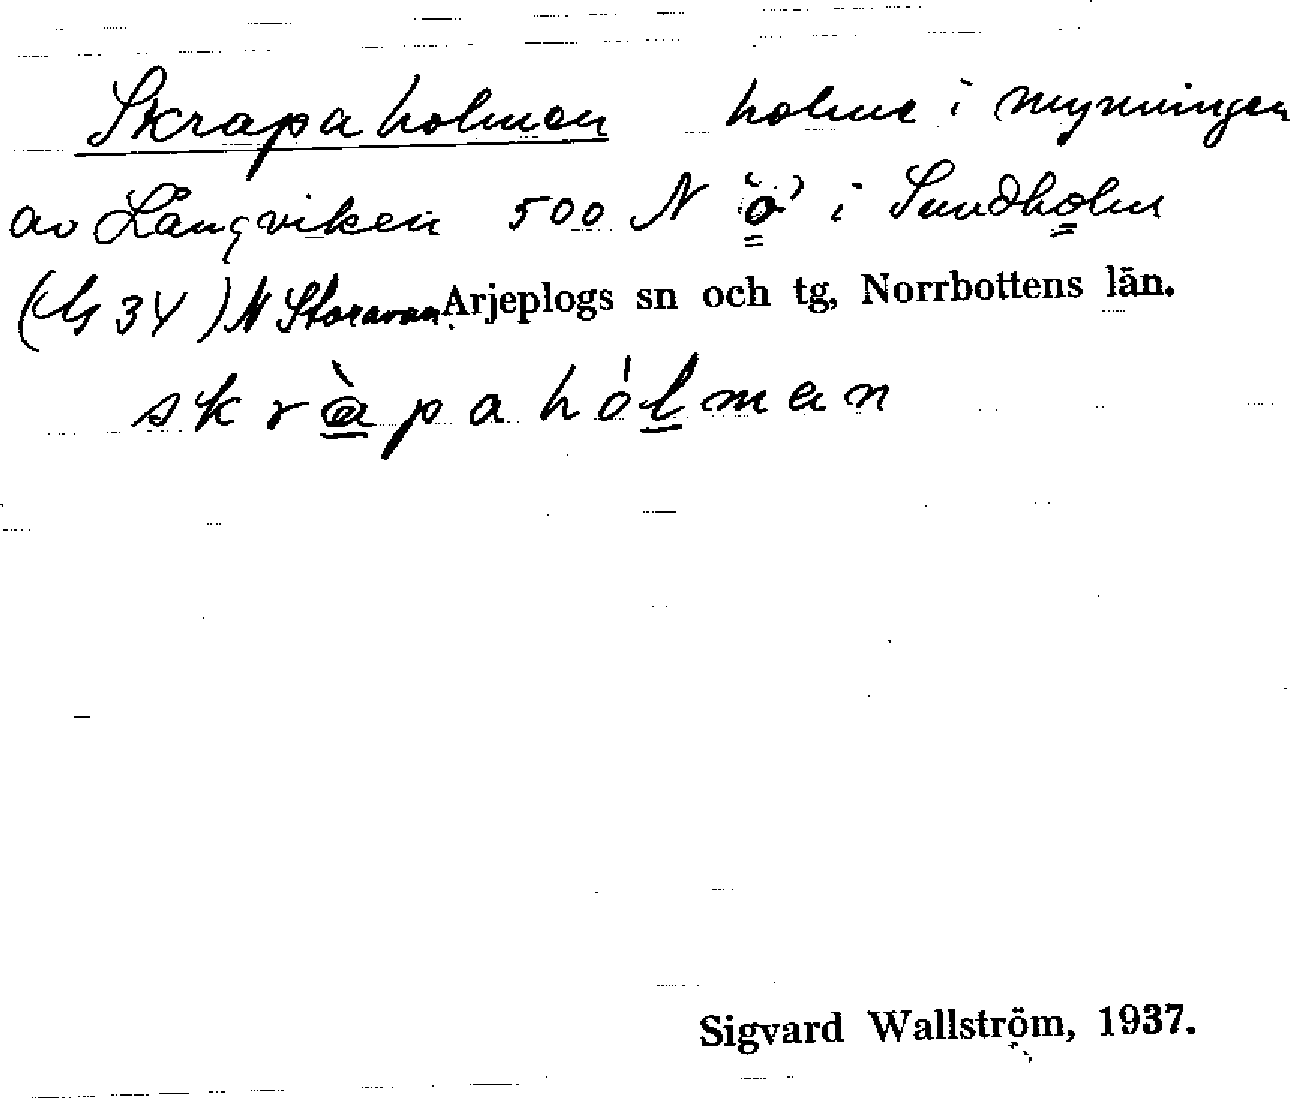 Skrapaholmen holme i mynningen
av Långviken 500 N "o" i Sundholm
34) N Storavan Arjeplogs sn och tg, Norrbottens län.
skràpahólman
Sigvard Wallström, 1937.